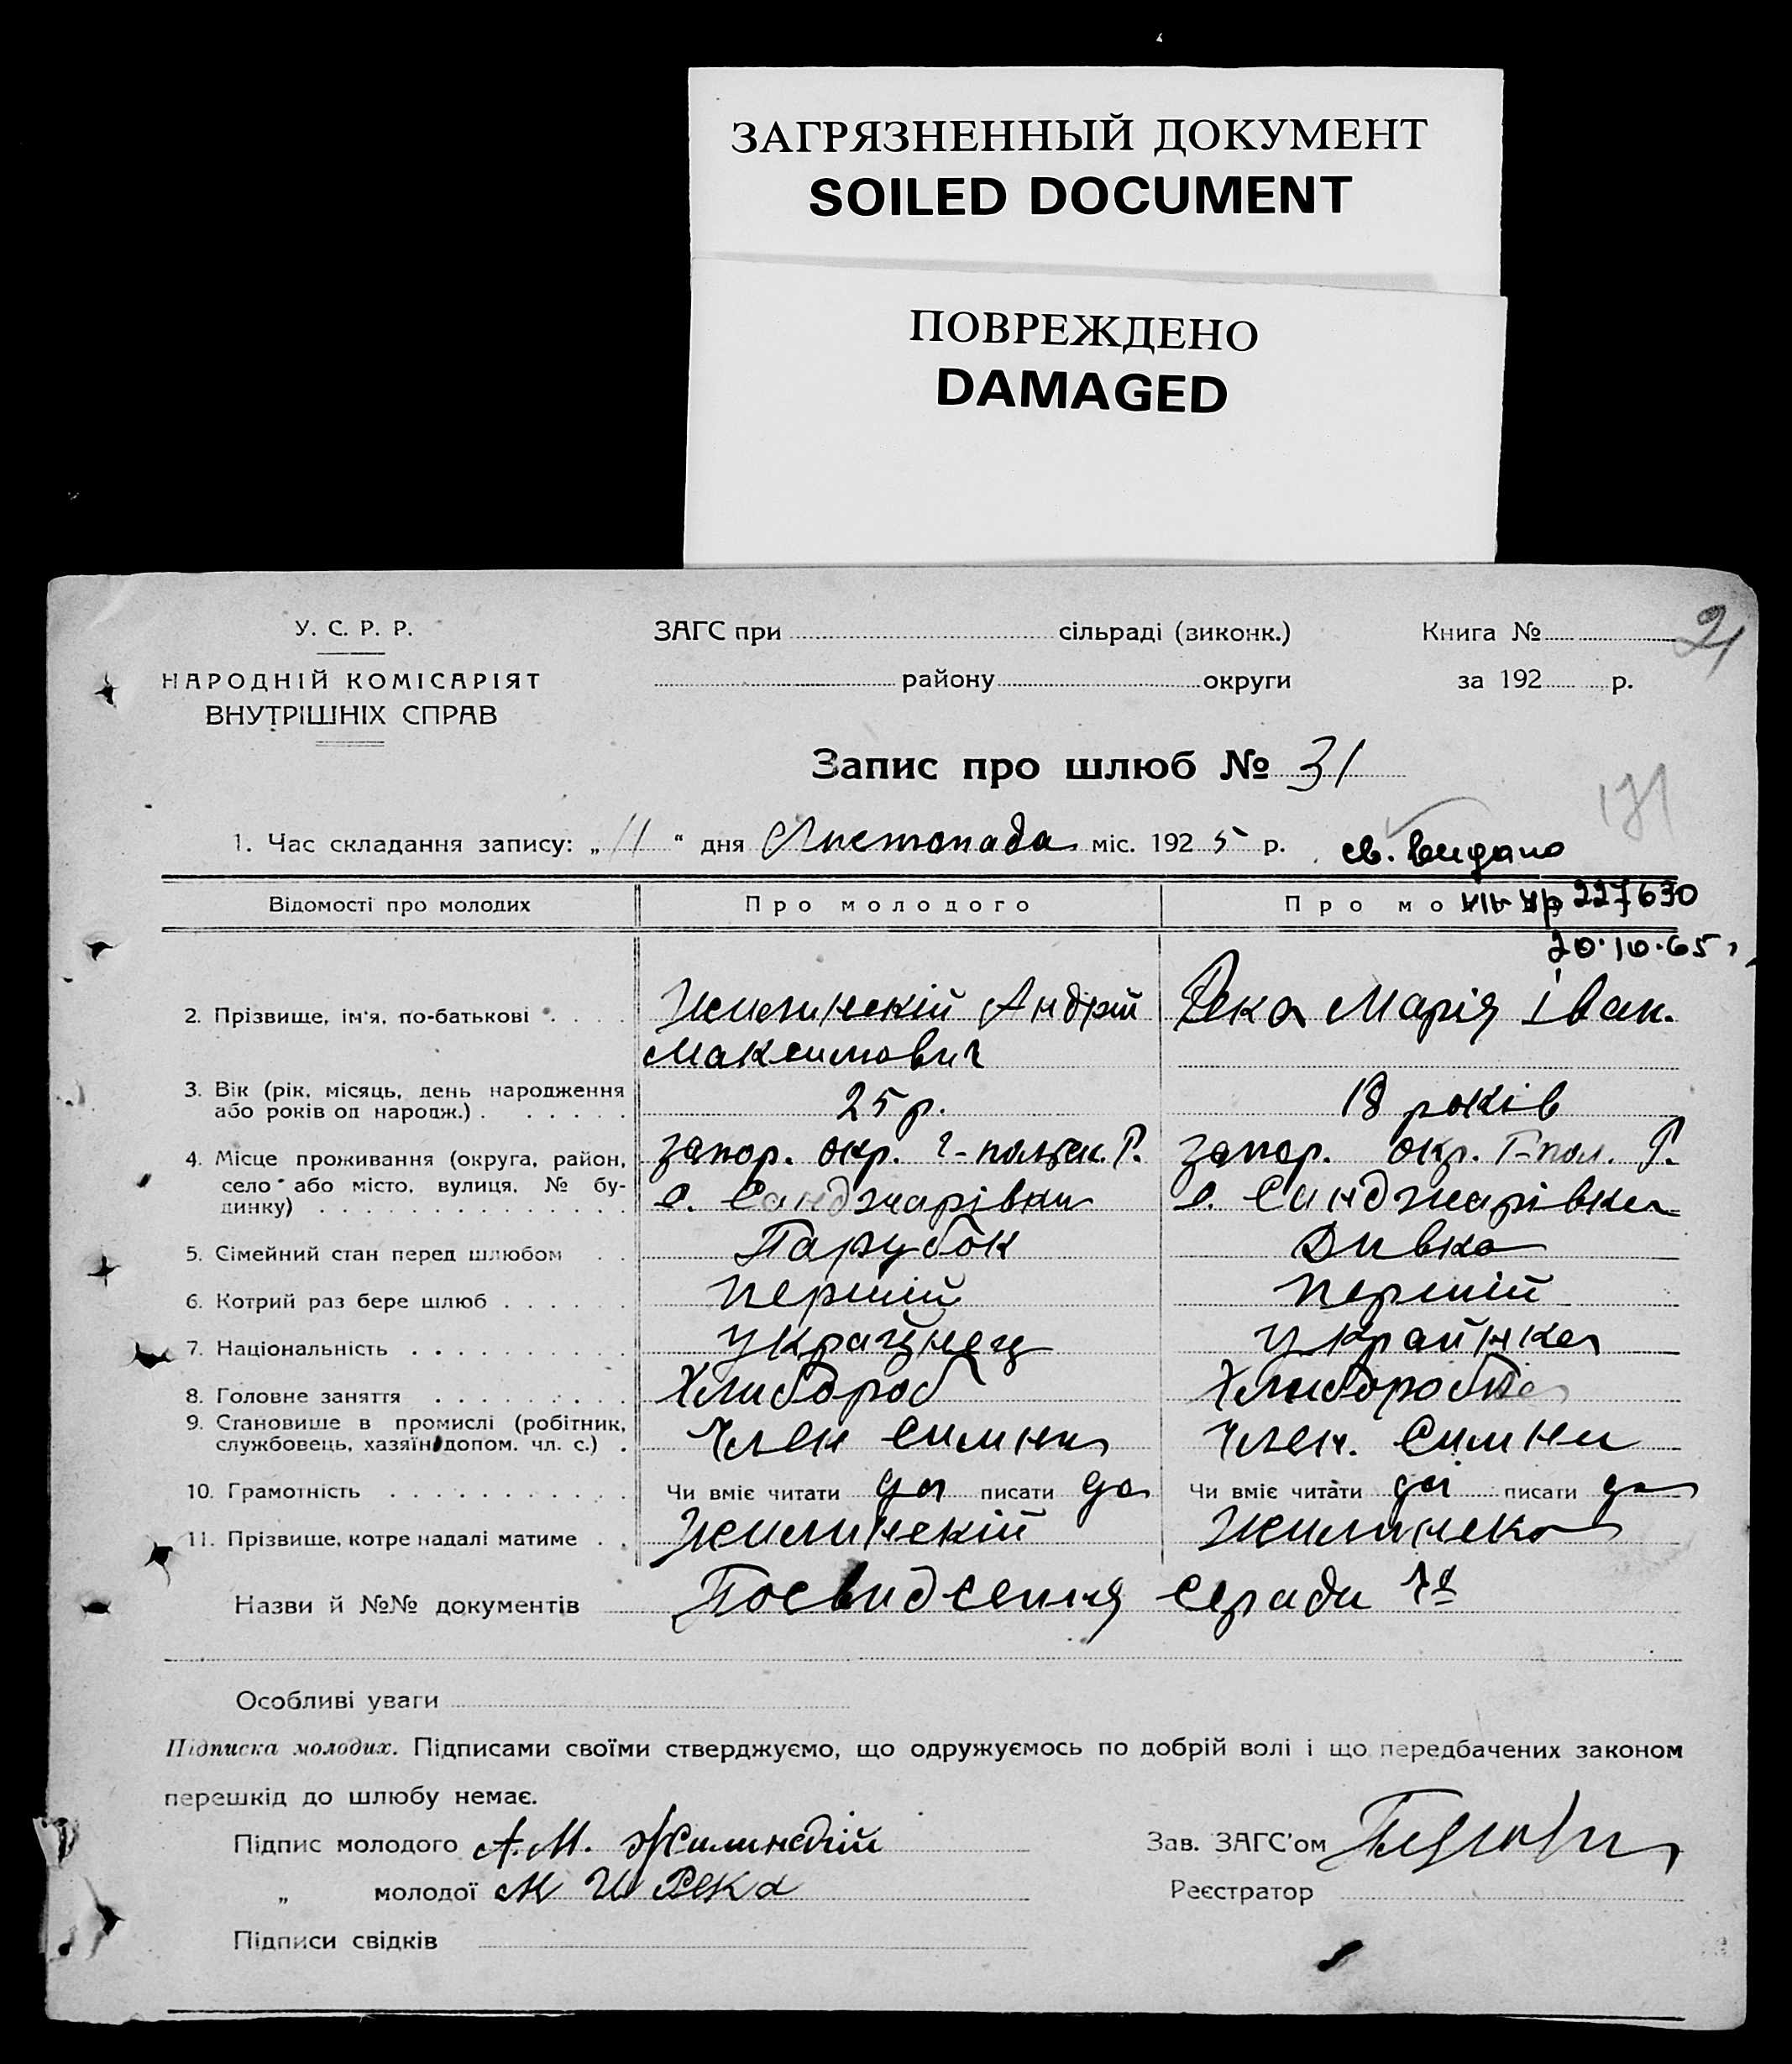 ЗАГРЯЗНЕННЫЙ ДОКУМЕНТ
SOILED DOCUMENT
ПОВРЕЖДЕНО
DAMAGED
У. С. Р. Р.
НАРОДНІЙ КОМІСАРІЯТ
ВНУТРІШНІХ СПРАВ
ЗАГС при сільраді (виконк.)
району округи
Книга №
за 192 р.
21
Запис про шлюб № 31
171
1. Час складання запису: „ 11 “ дня Листопада міс. 192 5 р.
св. видано
Відомості про молодих Про молодого Про мо
227630
20.10.65
2. Прізвище, ім'я, по-батькові Жилинскій Андрій Река Марія Іван.
Максимович
3. Вік (рік, місяць, день народження
або років од народж.) 25 р. 18 років
4. Місце проживання (округа, район, запор. окр. Г-польск. Р. запор. окр. Г-пол. Р.
село або місто, вулиця, № бу-
динку) с. Санджарівки с. Санджарівки
5. Сімейний стан перед шлюбом Парубок Дивка
6. Котрий раз бере шлюб першій першій
7. Національність Українец Українка
8. Головне заняття Хлибороб Хлиборобка
9. Становище в промислі (робітник,
службовець, хазяїн допом. чл. с.) Член симни Член. Симни
10. Грамотність Чи вміє читати да писати да Чи вміє читати да писати да
11. Прізвище, котре надалі матиме Жилинскій Жилинска
Назви й №№ документів Посвидсення с/ради
Особливі уваги
Підписка молодих. Підписами своїми стверджуємо, що одружуємось по добрій волі і що передбачених законом
перешкід до шлюбу немає.
Підпис молодого А. М. Жилинскій
„ молодої М И Река
Підписи свідків
Зав. ЗАГС'ом
Реєстратор